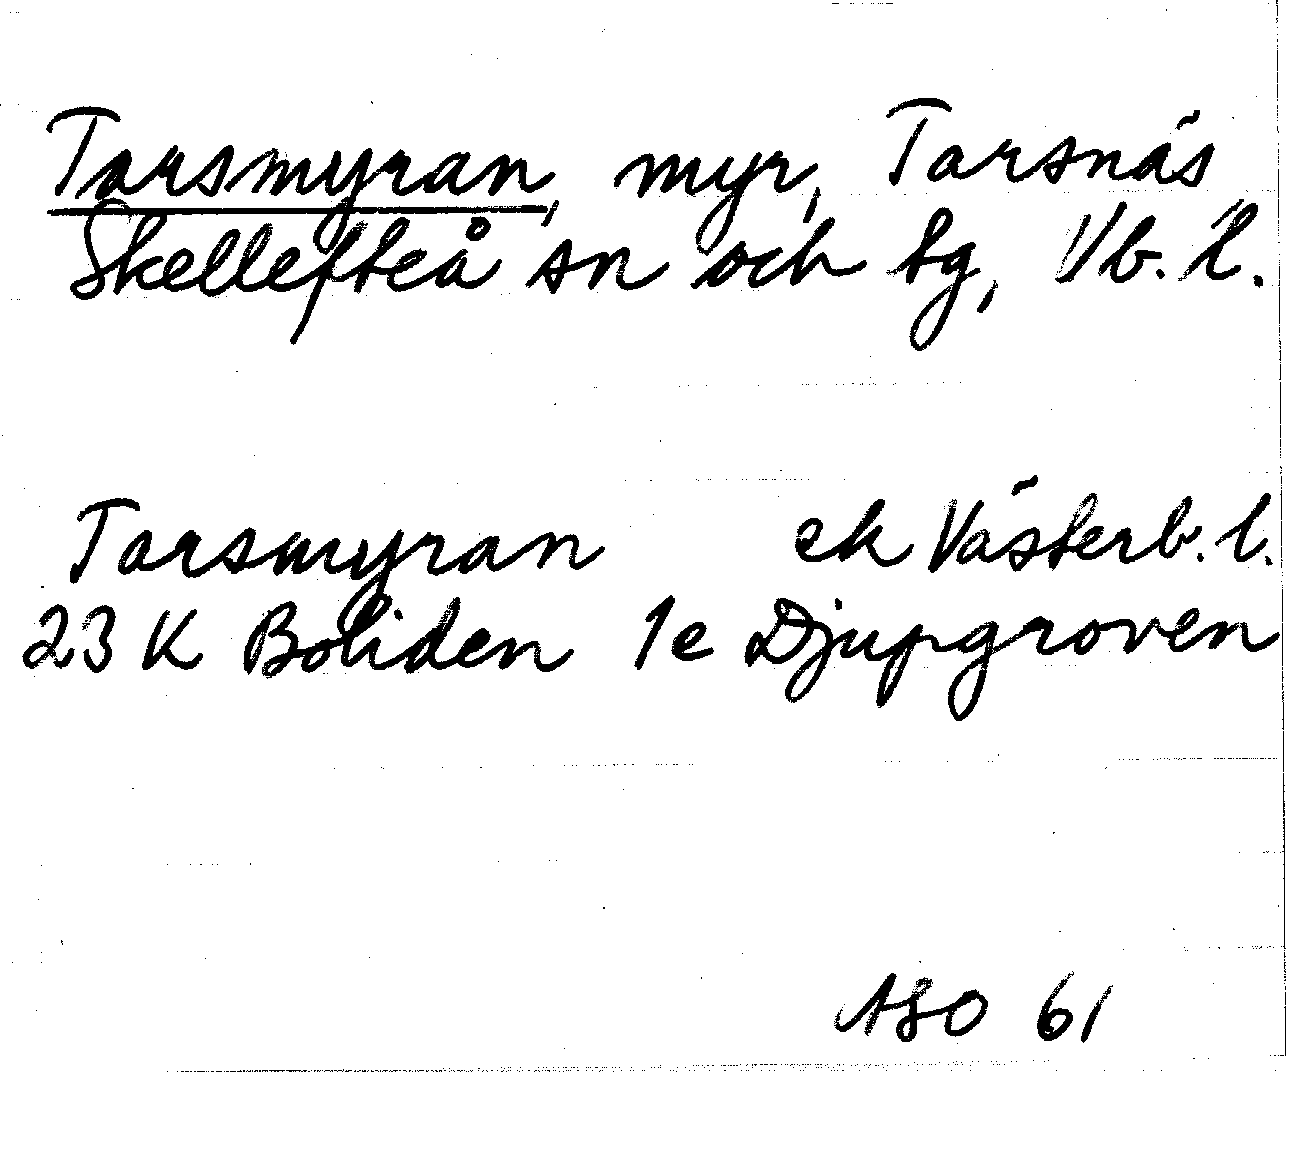 Tarsmyran, myr, Tarsnäs
Skellefteå sn och tg, Vb. l.
Tarsmyran ek Västerb. l.
23 K Boliden 1e Djupgroven
ASO 61